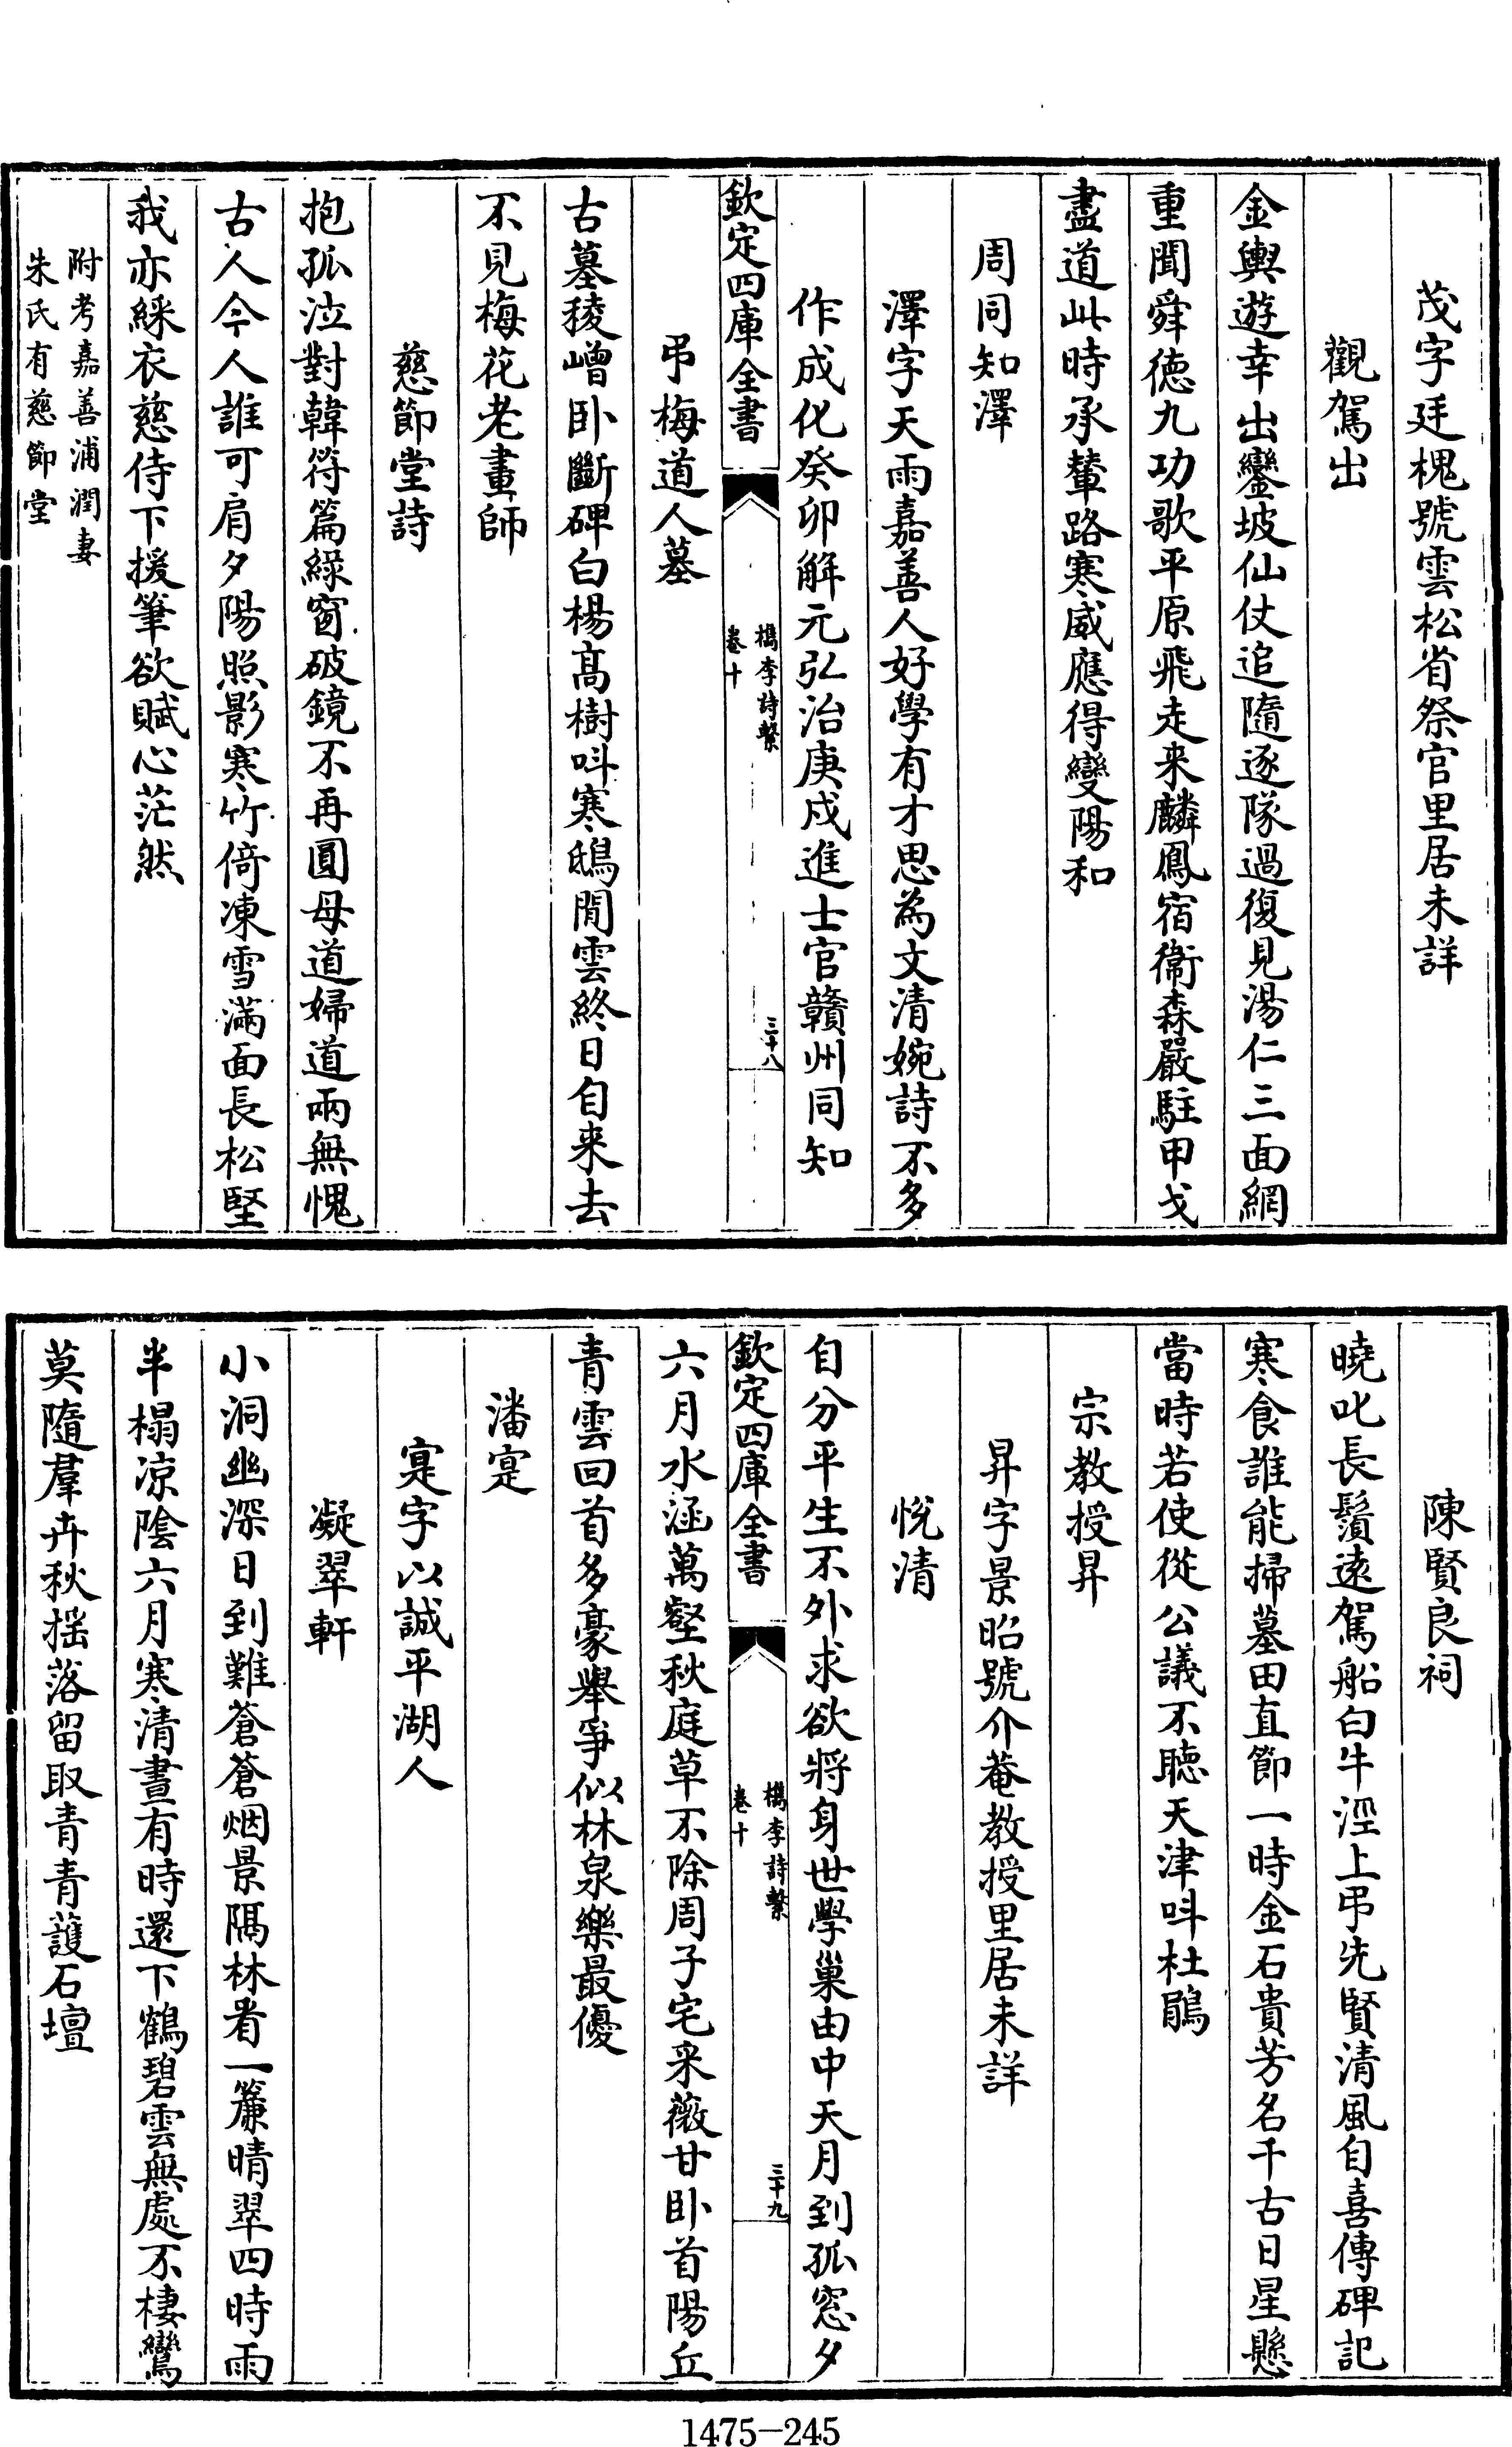 茂字廷槐號雲松省祭官里居未詳
觀駕出
金輿遊幸出鑾坡仙仗追隨逐隊過復見湯仁三面網
重聞舜徳九功歌平原飛走来麟鳳宿衞森嚴駐甲戈
盡道此時承輦路寒威應得變陽和
周同知澤
澤字天雨嘉善人好學有才思為文清婉詩不多
作成化癸卯解元弘治庚戌進士官贛州同知
欽定四庫全書
檇李詩繫
卷十
三十八
弔梅道人墓
古墓稜嶒卧斷碑白楊髙樹呌寒鴟閒雲終日自来去
不見梅花老畫師
慈節堂詩
抱孤泣對韓符篇緑窗破鏡不再圓母道婦道兩無愧
古人今人誰可肩夕陽照影寒竹倚凍雪滿面長松堅
我亦綵衣慈侍下援筆欲賦心茫然
附考嘉善浦潤妻
朱氏有慈節堂
陳賢良祠
曉叱長鬚遠駕船白牛涇上弔先賢清風自喜傳碑記
寒食誰能掃墓田直節一時金石貴芳名千古日星懸
當時若使從公議不聴天津呌杜鵑
宗教授昇
昇字景昭號介菴教授里居未詳
悅清
自分平生不外求欲將身世學巢由中天月到孤窓夕
欽定四庫全書
檇李詩繫
卷十
三十九
六月水涵萬壑秋庭草不除周子宅采薇甘卧首陽丘
青雲回首多豪舉爭似林泉樂最優
潘寔
寔字以誠平湖人
凝翠軒
小洞幽深日到難蒼蒼烟景隔林看一簾晴翠四時雨
半榻凉陰六月寒清晝有時還下鶴碧雲無處不棲鸞
莫隨羣卉秋揺落留取青青䕶石壇
1475-245